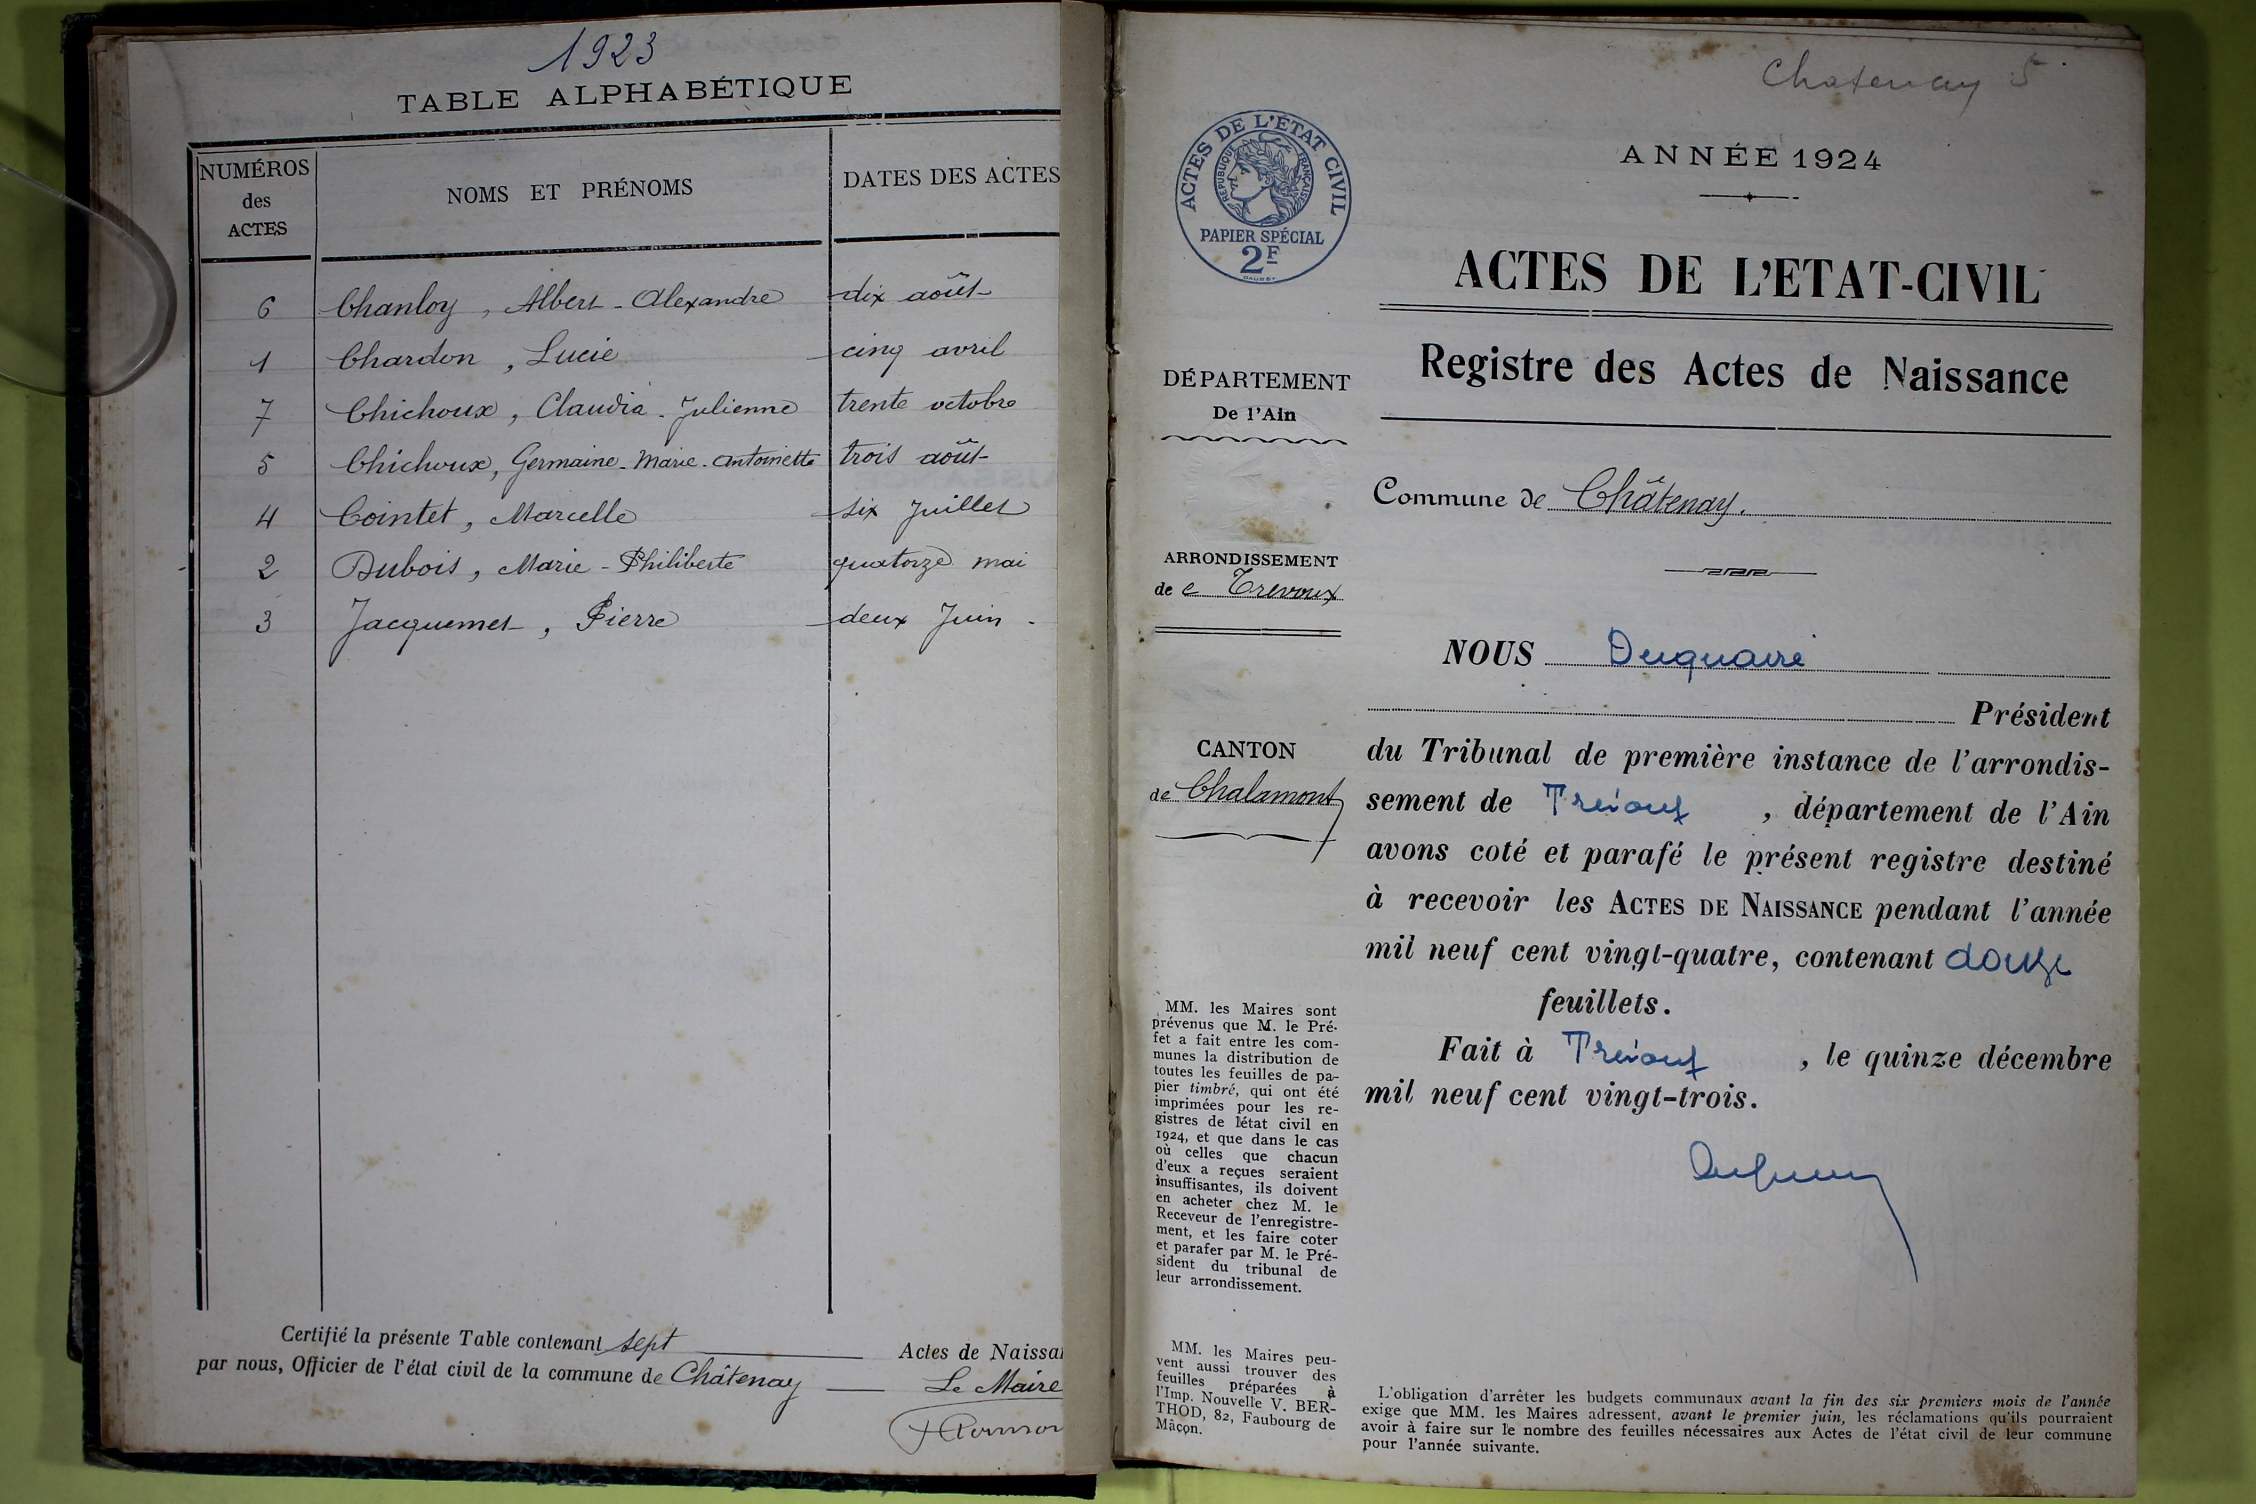 1923
TABLE ALPHABÉTIQUE
NUMÉROS des ACTES
NOMS ET PRÉNOMS
DATES DES ACTES
6 Chanloy, Albert-Alexandre dix août
1 Chardon, Lucie cinq avril
7 Chichoux, Claudia-Julienne trente octobre
5 Chichoux, Germaine-Marie-Antoinette trois août
4 Cointet, Marcelle six Juillet
2 Dubois, Marie-Philiberte quatorze mai
3 Jacquemet, Pierre deux Juin
Certifié la présente Table contenant sept Actes de Naissa
par nous, Officier de l'état civil de la commune de Châtenay
Le Maire
Chatenay 5
ACTES DE L'ÉTAT CIVIL
RÉPUBLIQUE FRANÇAISE
PAPIER SPÉCIAL
2F
ANNÉE 1924
ACTES DE L'ETAT-CIVIL
Registre des Actes de Naissance
DÉPARTEMENT
De l'Ain
Commune de Châtenay.
ARRONDISSEMENT
de Trevoux
CANTON
de Chalamont
NOUS Duquaire
Président
du Tribunal de première instance de l'arrondis-
sement de Trévoux, département de l'Ain
avons coté et parafé le présent registre destiné
à recevoir les ACTES DE NAISSANCE pendant l'année
mil neuf cent vingt-quatre, contenant douze
feuillets.
Fait à Trévoux, le quinze décembre
mil neuf cent vingt-trois.
MM. les Maires sont
prévenus que M. le Pré-
fet a fait entre les com-
munes la distribution de
toutes les feuilles de pa-
pier timbré, qui ont été
imprimées pour les re-
gistres de l'état civil en
1924, et que dans le cas
où celles que chacun
d'eux a reçues seraient
insuffisantes, ils doivent
en acheter chez M. le
Receveur de l'enregistre-
ment, et les faire coter
et parafer par M. le Pré-
sident du tribunal de
leur arrondissement.
MM. les Maires peu-
vent aussi trouver des
feuilles préparées à
l'Imp. Nouvelle V. BER-
THOD, 82, Faubourg de
Mâcon.
L'obligation d'arrêter les budgets communaux avant la fin des six premiers mois de l'année
exige que MM. les Maires adressent, avant le premier juin, les réclamations qu'ils pourraient
avoir à faire sur le nombre des feuilles nécessaires aux Actes de l'état civil de leur commune
pour l'année suivante.